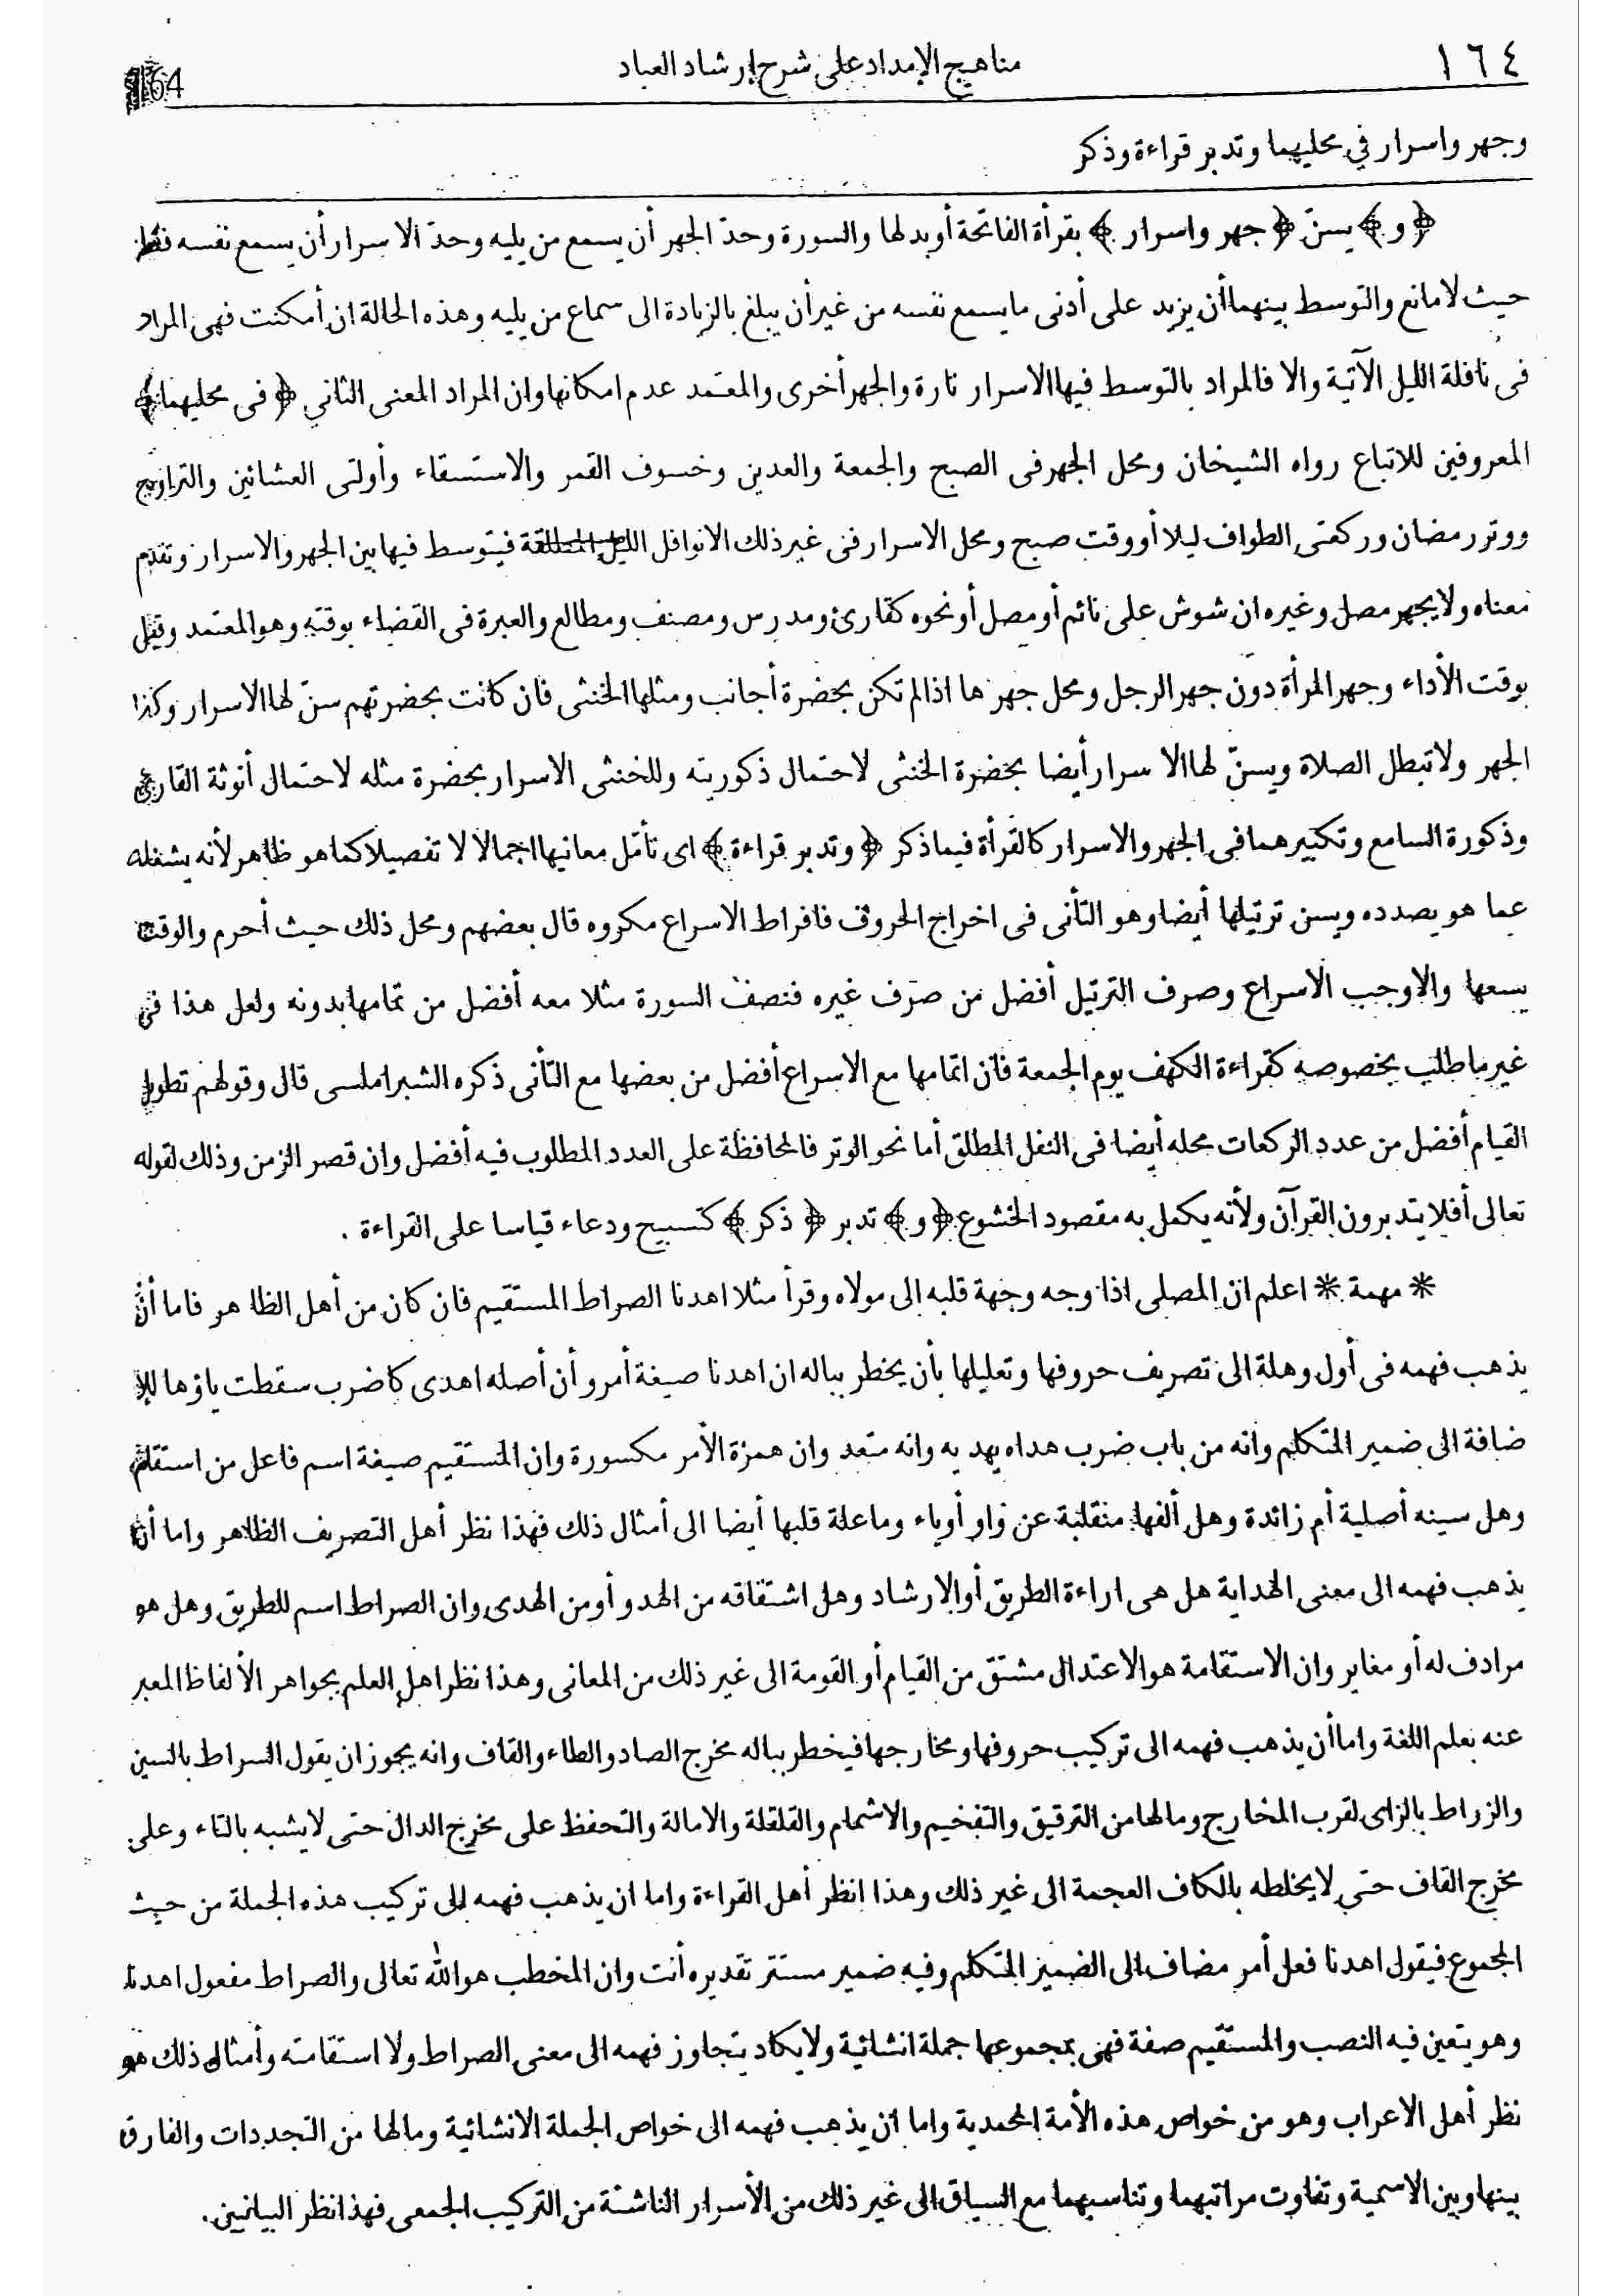 ١٦٤
مناهيج الإمداد على شرح إرشاد العباد
164
وجهر واسرار في محليهما وتدبر قراءة وذكر
﴿و﴾ يسنّ ﴿جهر واسرار﴾ بقرأة الفاتحة أو بدلها والسورة وحدّ الجهر أن يسمع من يليه وحدّ الاسرار أن يسمع نفسه فقط
حيث لا مانع والتوسط بينهما أن يزيد على أدنى ما يسمع نفسه من غير أن يبلغ بالزيادة الى سماع من يليه وهذه الحالة ان أمكنت فهى المراد
فى نافلة الليل الآتية والا فالمراد بالتوسط فيها الاسرار تارة والجهر أخرى والمعتمد عدم امكانها وان المراد المعنى الثاني ﴿فى محليهما﴾
المعروفين للاتباع رواه الشيخان ومحل الجهر فى الصبح والجمعة والعدين وخسوف القمر والاستسقاء وأولتى العشائين والتراويح
ووتر رمضان وركعتى الطواف ليلا أو وقت صبح ومحل الاسرار فى غير ذلك الا نوافل الليل المطلقة فيتوسط فيها بين الجهر والاسرار وتقدم
معناه ولا يجهر مصل وغيره ان شوش على نائم أو مصل أو نحوه كقارئ ومدرس ومصنف ومطالع والعبرة فى القضاء بوقته وهو المعتمد وقيل
بوقت الأداء وجهر المرأة دون جهر الرجل ومحل جهرها اذا لم تكن بحضرة أجانب ومثلها الخنثى فان كانت بحضرتهم سنّ لها الاسرار وكذا
الجهر ولا تبطل الصلاة ويسنّ لها الاسرار أيضا بحضرة الخنثى لاحتمال ذكوريته وللخنثى الاسرار بحضرة مثله لاحتمال أنوثة القارئ
وذكورة السامع وتكبيرهما فى الجهر والاسرار كالقرأة فيما ذكر ﴿وتدبر قراءة﴾ اى تأمّل معانيها اجمالا لا تفصيلا كما هو ظاهر لأنه يشغله
عما هو بصدده ويسن ترتيلها أيضا وهو التأنى فى اخراج الحروف فافراط الاسراع مكروه قال بعضهم ومحل ذلك حيث أحرم والوقت
يسعها والا وجب الاسراع وصرف الترتيل أفضل من صرف غيره فنصف السورة مثلا معه أفضل من تمامها بدونه ولعل هذا فى
غير ما طلب بخصوصه كقراءة الكهف يوم الجمعة فان اتمامها مع الاسراع أفضل من بعضها مع التأنى ذكره الشبراملسى قال وقولهم تطويل
القيام أفضل من عدد الركعات محله أيضا فى النفل المطلق أما نحو الوتر فالمحافظة على العدد المطلوب فيه أفضل وان قصر الزمن وذلك لقوله
تعالى أفلا يتدبرون القرآن ولأنه يكمل به مقصود الخشوع ﴿و﴾ تدبر ﴿ذكر﴾ كتسبيح ودعاء قياسا على القراءة .
* مهمة * اعلم ان المصلى اذا وجه وجهة قلبه إلى مولاه وقرأ مثلا اهدنا الصراط المستقيم فان كان من أهل الظاهر فاما أن
يذهب فهمه فى أول وهلة الى تصريف حروفها وتعليلها بأن يخطر بباله ان اهدنا صيغة أمر وأن أصله اهدى كاضرب سقطت ياؤها للإ
ضافة الى ضمير المتكلم وانه من باب ضرب هداه يهديه وانه متعد وان همزة الأمر مكسورة وان المستقيم صيغة اسم فاعل من استقام
وهل سينه أصلية أم زائدة وهل ألفها منقلبة عن واو أو ياء وما علة قلبها أيضا الى أمثال ذلك فهذا نظر أهل التصريف الظاهر واما أن
يذهب فهمه الى معنى الهداية هل هى اراءة الطريق أو الارشاد وهل اشتقاقه من الهدو أو من الهدى وان الصراط اسم للطريق وهل هو
مرادف له أو مغاير وان الاستقامة هو الاعتدال مشتق من القيام أو القومة الى غير ذلك من المعانى وهذا نظر اهل العلم بجواهر الألفاظ المعبر
عنه بعلم اللغة واما أن يذهب فهمه الى تركيب حروفها ومخارجها فيخطر بباله مخرج الصاد والطاء والقاف وانه يجوز ان يقول السراط بالسين
والزراط بالزاى لقرب المخارج وما لها من الترقيق والتفخيم والاشمام والقلقلة والامالة والتحفظ على مخرج الدال حتى لا يشبه بالتاء وعلى
مخرج القاف حتى لا يخلطه بالكاف العجمة الى غير ذلك وهذا انظر أهل القراءة واما ان يذهب فهمه إلى تركيب هذه الجملة من حيث
المجموع فيقول اهدنا فعل أمر مضاف الى الضمير المتكلم وفيه ضمير مستتر تقديره أنت وان المخطب هو الله تعالى والصراط مفعول اهدنا
وهو يتعين فيه النصب والمستقيم صفة فهى بمجموعها جملة انشائية ولا يكاد يتجاوز فهمه الى معنى الصراط ولا استقامته وأمثال ذلك هو
نظر أهل الاعراب وهو من خواص هذه الأمة المحمدية واما ان يذهب فهمه الى خواص الجملة الانشائية وما لها من التجددات والفارق
بينها وبين الاسمية وتفاوت مراتبهما وتناسبهما مع السياق الى غير ذلك من الأسرار الناشئة من التركيب الجمعى فهذا نظر البيانيين.